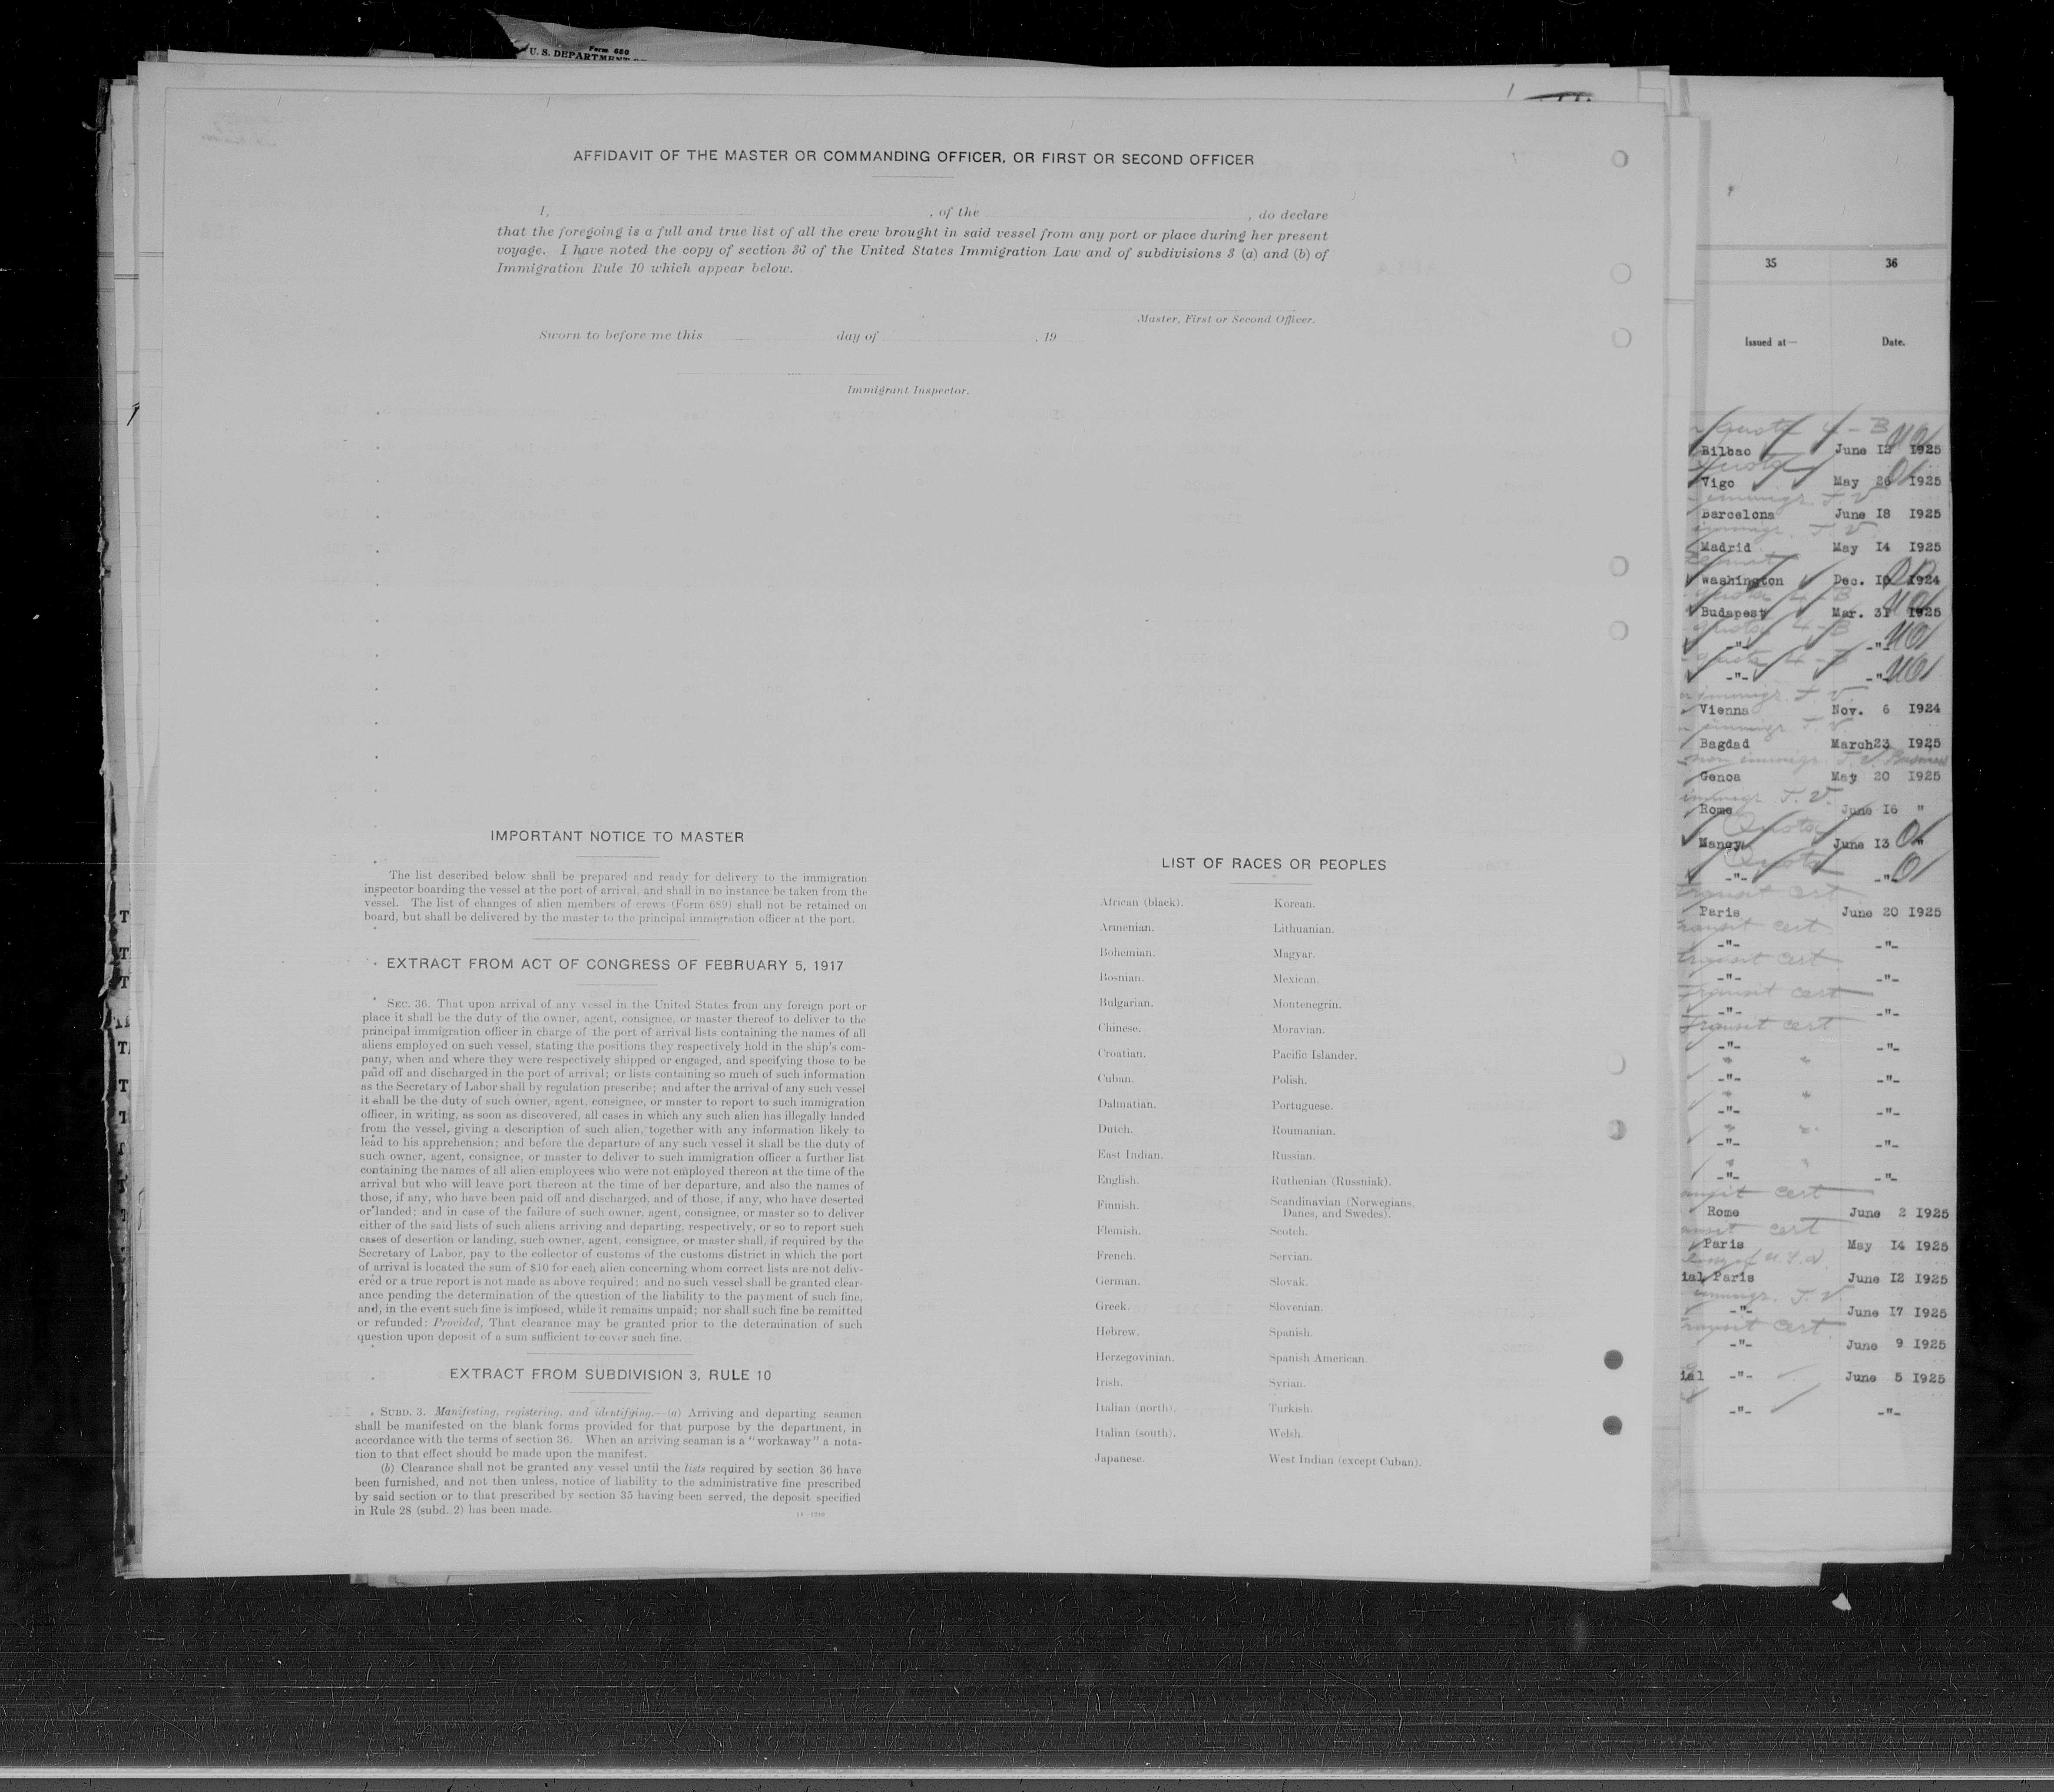 Form 680
U. S. DEPARTMENT
AFFIDAVIT OF THE MASTER OR COMMANDING OFFICER, OR FIRST OR SECOND OFFICER
I, , of the , do declare
that the foregoing is a full and true list of all the crew brought in said vessel from any port or place during her present
voyage. I have noted the copy of section 36 of the United States Immigration Law and of subdivisions 3 (a) and (b) of
Immigration Rule 10 which appear below.
Master, First or Second Officer.
Sworn to before me this day of , 19
Immigrant Inspector.
IMPORTANT NOTICE TO MASTER
The list described below shall be prepared and ready for delivery to the immigration
inspector boarding the vessel at the port of arrival, and shall in no instance be taken from the
vessel. The list of changes of alien members of crews (Form 689) shall not be retained on
board, but shall be delivered by the master to the principal immigration officer at the port.
EXTRACT FROM ACT OF CONGRESS OF FEBRUARY 5, 1917
SEC. 36. That upon arrival of any vessel in the United States from any foreign port or
place it shall be the duty of the owner, agent, consignee, or master thereof to deliver to the
principal immigration officer in charge of the port of arrival lists containing the names of all
aliens employed on such vessel, stating the positions they respectively hold in the ship's com-
pany, when and where they were respectively shipped or engaged, and specifying those to be
paid off and discharged in the port of arrival; or lists containing so much of such information
as the Secretary of Labor shall by regulation prescribe; and after the arrival of any such vessel
it shall be the duty of such owner, agent, consignee, or master to report to such immigration
officer, in writing, as soon as discovered, all cases in which any such alien has illegally landed
from the vessel, giving a description of such alien, together with any information likely to
lead to his apprehension; and before the departure of any such vessel it shall be the duty of
such owner, agent, consignee, or master to deliver to such immigration officer a further list
containing the names of all alien employees who were not employed thereon at the time of the
arrival but who will leave port thereon at the time of her departure, and also the names of
those, if any, who have been paid off and discharged, and of those, if any, who have deserted
or landed; and in case of the failure of such owner, agent, consignee, or master so to deliver
either of the said lists of such aliens arriving and departing, respectively, or so to report such
cases of desertion or landing, such owner, agent, consignee, or master shall, if required by the
Secretary of Labor, pay to the collector of customs of the customs district in which the port
of arrival is located the sum of $10 for each alien concerning whom correct lists are not deliv-
ered or a true report is not made as above required; and no such vessel shall be granted clear-
ance pending the determination of the question of the liability to the payment of such fine,
and, in the event such fine is imposed, while it remains unpaid; nor shall such fine be remitted
or refunded: Provided, That clearance may be granted prior to the determination of such
question upon deposit of a sum sufficient to cover such fine.
EXTRACT FROM SUBDIVISION 3, RULE 10
SUBD. 3. Manifesting, registering, and identifying.—(a) Arriving and departing seamen
shall be manifested on the blank forms provided for that purpose by the department, in
accordance with the terms of section 36. When an arriving seaman is a "workaway" a nota-
tion to that effect should be made upon the manifest.
(b) Clearance shall not be granted any vessel until the lists required by section 36 have
been furnished, and not then unless, notice of liability to the administrative fine prescribed
by said section or to that prescribed by section 35 having been served, the deposit specified
in Rule 28 (subd. 2) has been made.
LIST OF RACES OR PEOPLES
African (black). Korean.
Armenian. Lithuanian.
Bohemian. Magyar.
Bosnian. Mexican.
Bulgarian. Montenegrin.
Chinese. Moravian.
Croatian. Pacific Islander.
Cuban. Polish.
Dalmatian. Portuguese.
Dutch. Roumanian.
East Indian. Russian.
English. Ruthenian (Russniak).
Finnish. Scandinavian (Norwegians,
Danes, and Swedes).
Flemish. Scotch.
French. Servian.
German. Slovak.
Greek. Slovenian.
Hebrew. Spanish.
Herzegovinian. Spanish American.
Irish. Syrian.
Italian (north). Turkish.
Italian (south). Welsh.
Japanese. West Indian (except Cuban).
35 36
Issued at— Date.
Quota 4 - B
Bilbao June I2 I925
Quota
Vigo May 26 I925
immigr. T. V.
Barcelona June I8 I925
immigr. T. V.
Madrid May I4 I925
Washington Dec. I0 I924
Quota 4 - B
Budapest Mar. 3I I925
Quota 4 - B
-"- -"-
Quota 4 - B
-"- -"-
immigr. T. V.
Vienna Nov. 6 I924
immigr. T. V.
Bagdad March23 I925
non immigr. T. V. Business
Genoa May 20 I925
immigr. T. V.
Rome June I6 "
Quota
Nancy June I3 "
Quota
-"- -"-
Transit cert
Paris June 20 I925
Transit cert.
-"- -"-
Transit cert.
-"- -"-
Transit cert
-"- -"-
Transit cert
-"- -"-
" "
-"- -"-
" "
-"- -"-
" "
-"- -"-
" "
-"- -"-
ansit cert
Rome June 2 I925
ansit cert
Paris May I4 I925
of U. S. A.
ial Paris June I2 I925
immigr. T. V.
-"- June I7 I925
Transit cert.
-"- June 9 I925
ial -"- June 5 I925
-"- -"-